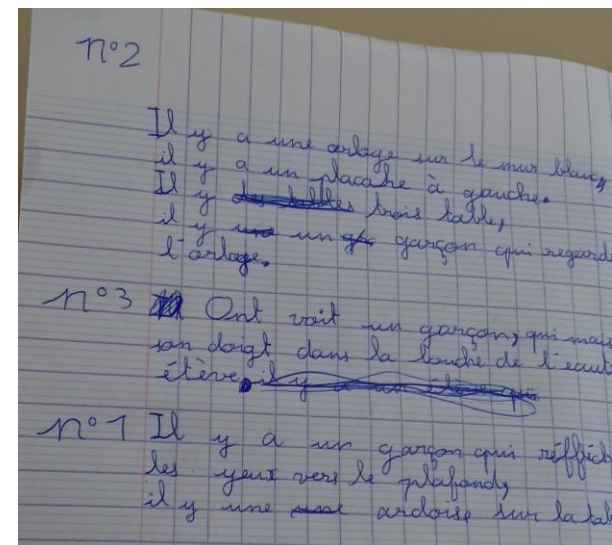 n°2
Il y a une orlage sur le mur blanc,
il y a un placahe à gauche.
Il y trois table,
il y un garçon qui regard
l'orlage.
n°3 Ont voit un garçon, qui mais
son doigt dans la bouche de l'eaut
étève.
n°1 Il y a un garçon qui réffich
les yeux vers le plafond,
il y une ardoise sur la tab